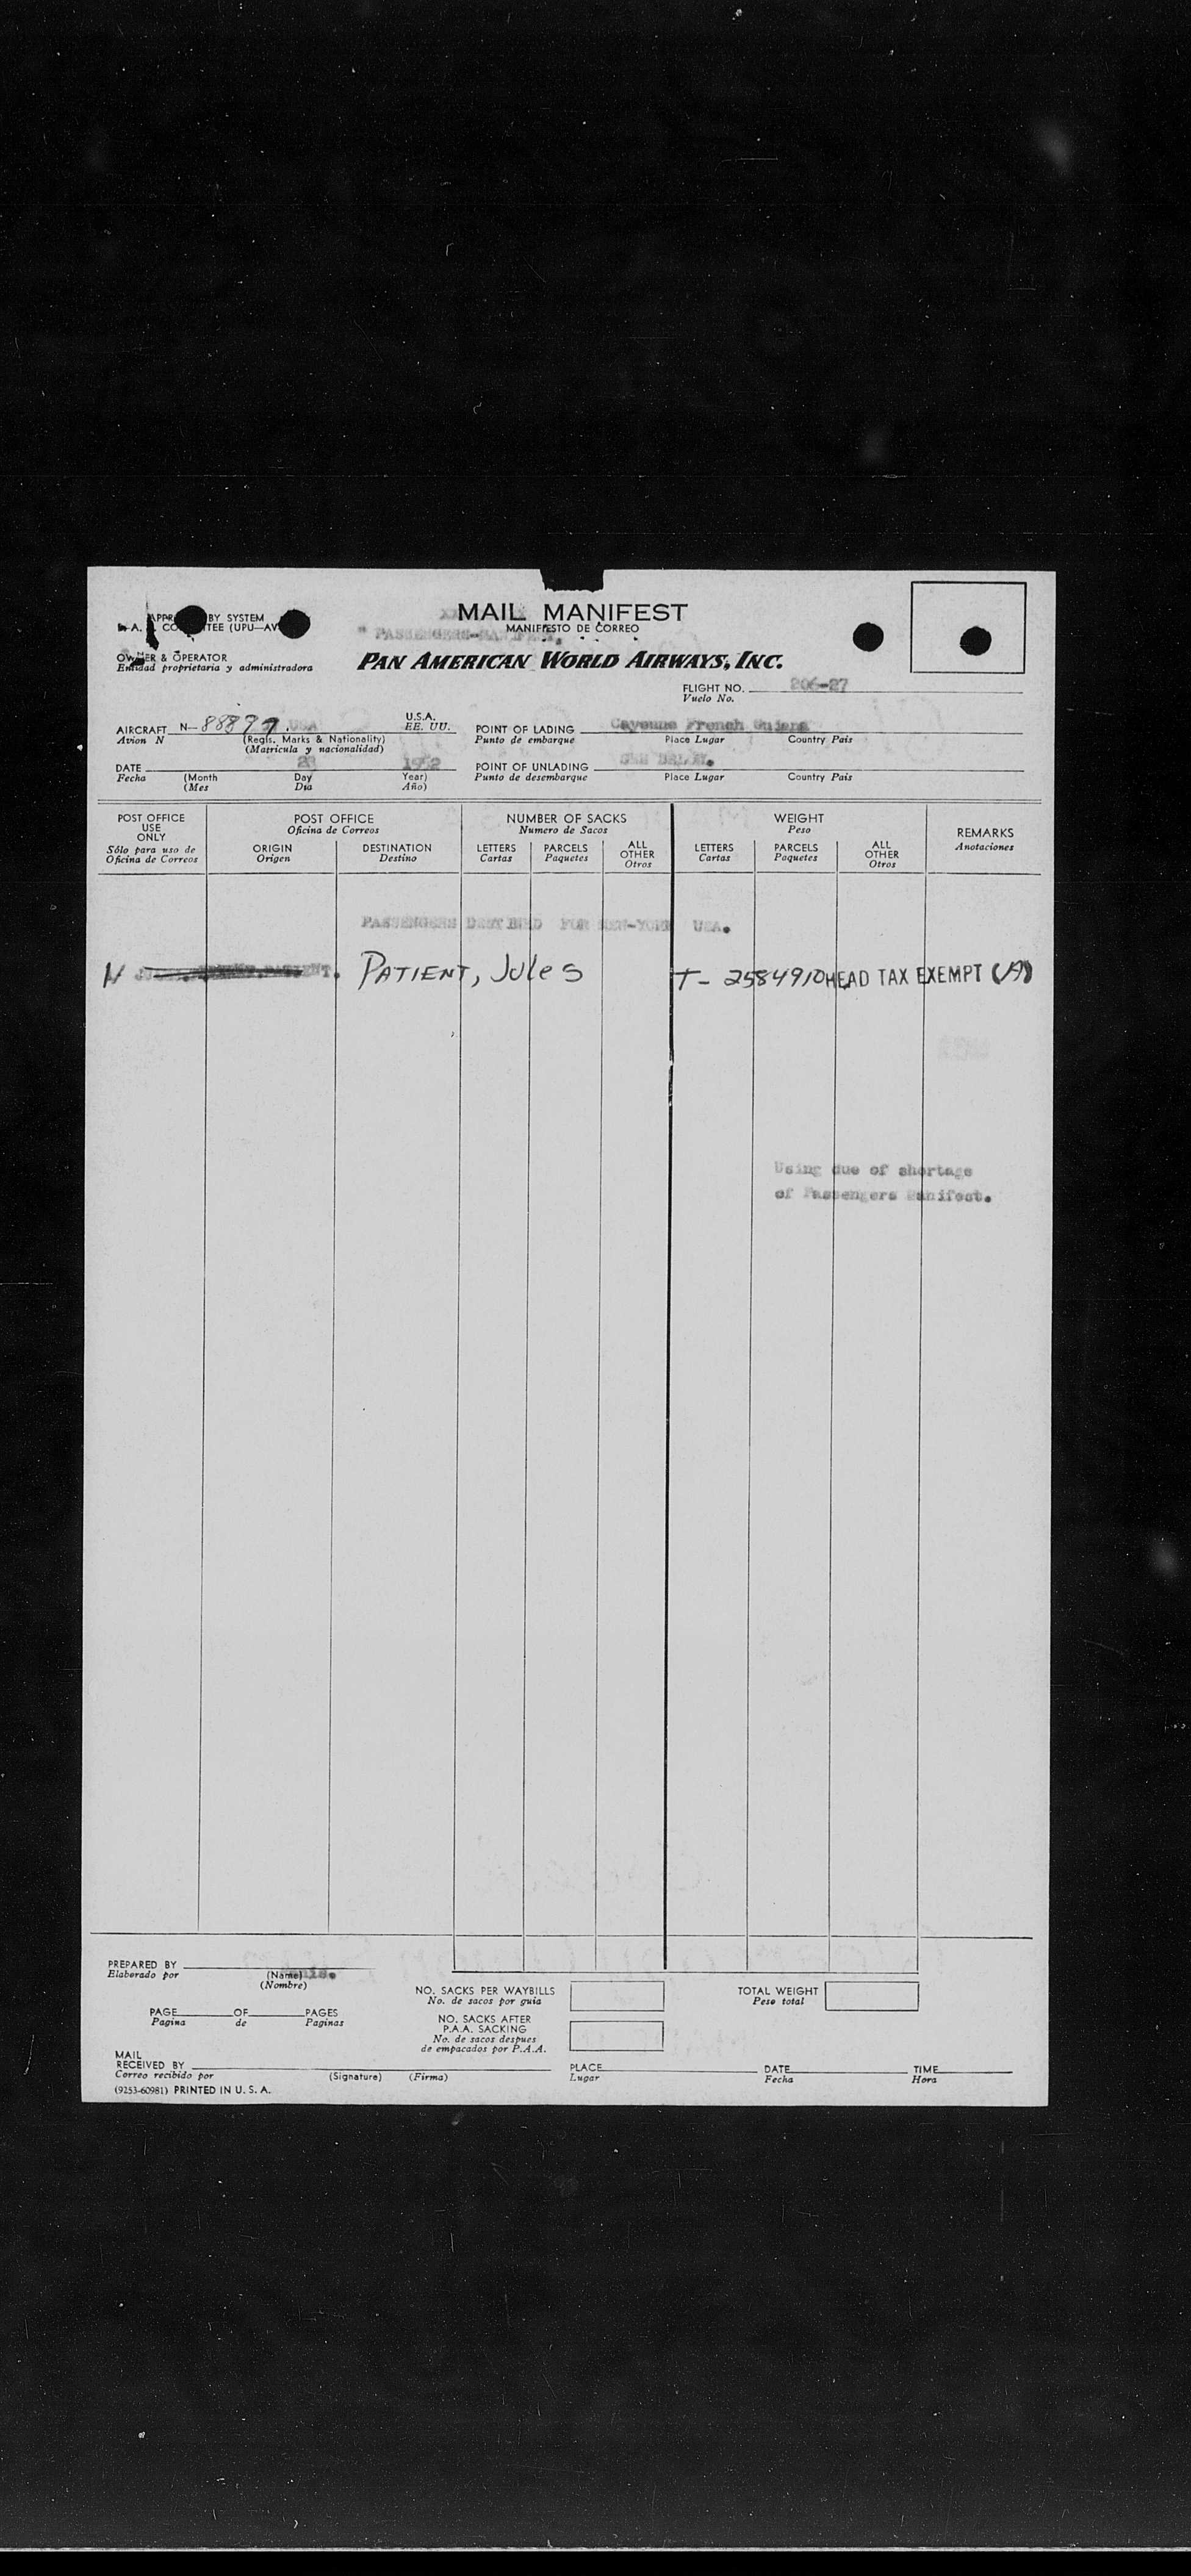 MAIL MANIFEST
MANIFIESTO DE CORREO
" PASSENGERS-MANIFEST.
BY SYSTEM
TEE (UPU—AV
OWNER & OPERATOR
Entidad proprietaria y administradora
PAN AMERICAN WORLD AIRWAYS, INC.
FLIGHT NO. 206-27
Vuelo No.
AIRCRAFT N- USA U.S.A. EE. UU.
Avion N (Regis. Marks & Nationality)
(Matricula y nacionalidad)
POINT OF LADING Cayenne French Guiana
Punto de embarque Place Lugar Country Pais
DATE 23 1952
Fecha (Month Day Year)
(Mes Dia Año)
POINT OF UNLADING SEE BELOW.
Punto de desembarque Place Lugar Country Pais
POST OFFICE USE ONLY
Sólo para uso de Oficina de Correos
POST OFFICE
Oficina de Correos
ORIGIN
Origen
DESTINATION
Destino
NUMBER OF SACKS
Numero de Sacos
LETTERS
Cartas
PARCELS
Paquetes
ALL OTHER
Otros
WEIGHT
Peso
LETTERS
Cartas
PARCELS
Paquetes
ALL OTHER
Otros
REMARKS
Anotaciones
PASSENGERS DESTINED FOR NEW-YORK USA.
N PATIENT, Jules T- 2584910 HEAD TAX EXEMPT (JA)
Using due of shortage
of Passengers Manifest.
PREPARED BY
Elaborado por (Name)
(Nombre)
PAGE OF PAGES
Pagina de Paginas
NO. SACKS PER WAYBILLS
No. de sacos por guia
NO. SACKS AFTER
P.A.A. SACKING
No. de sacos despues
de empacados por P.A.A.
TOTAL WEIGHT
Peso total
MAIL
RECEIVED BY
Correo recibido por (Signature) (Firma)
PLACE
Lugar
DATE
Fecha
TIME
Hora
(9253-60981) PRINTED IN U. S. A.